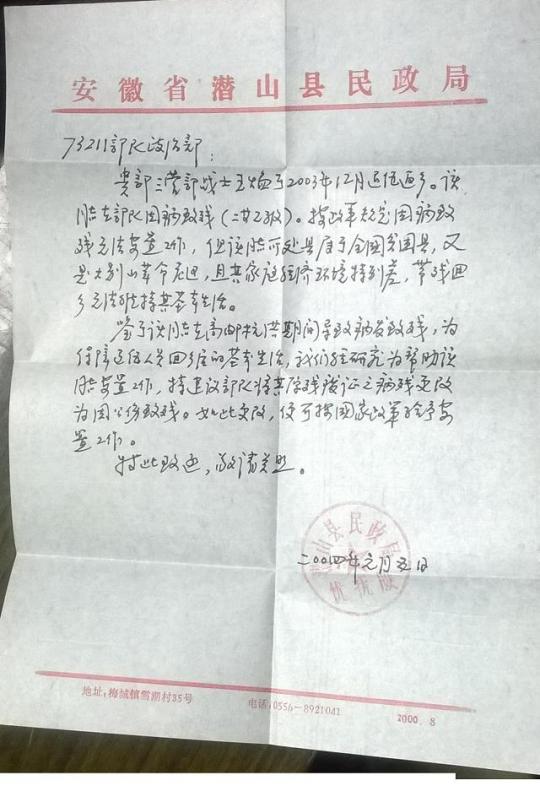 安徽省潜山县民政局
73211部队政治部:
贵部三营部战士王灿于2003年12月退伍返乡。该
同志在部队因病致残(二等乙级)。按政策规定因病致
残无法安置工作,但该同志所处县属于全国贫困县,又
是大别山革命老区,且其家庭经济环境特别差,带残回
乡无法维持其基本生活。
鉴于该同志在高邮抗洪期间导致病发致残,为
保障退伍人员回乡后的基本生活,我们经研究为帮助该
同志安置工作,特建议部队将其伤残证之病残更改
为因公伤致残。如此更改,便可按国家政策给予安
置工作。
特此致函,敬请关照。
山县民政局
优抚股
二00四年元月五日
地址:梅城镇雪湖村35号
电话:0556-8921041
2000.8